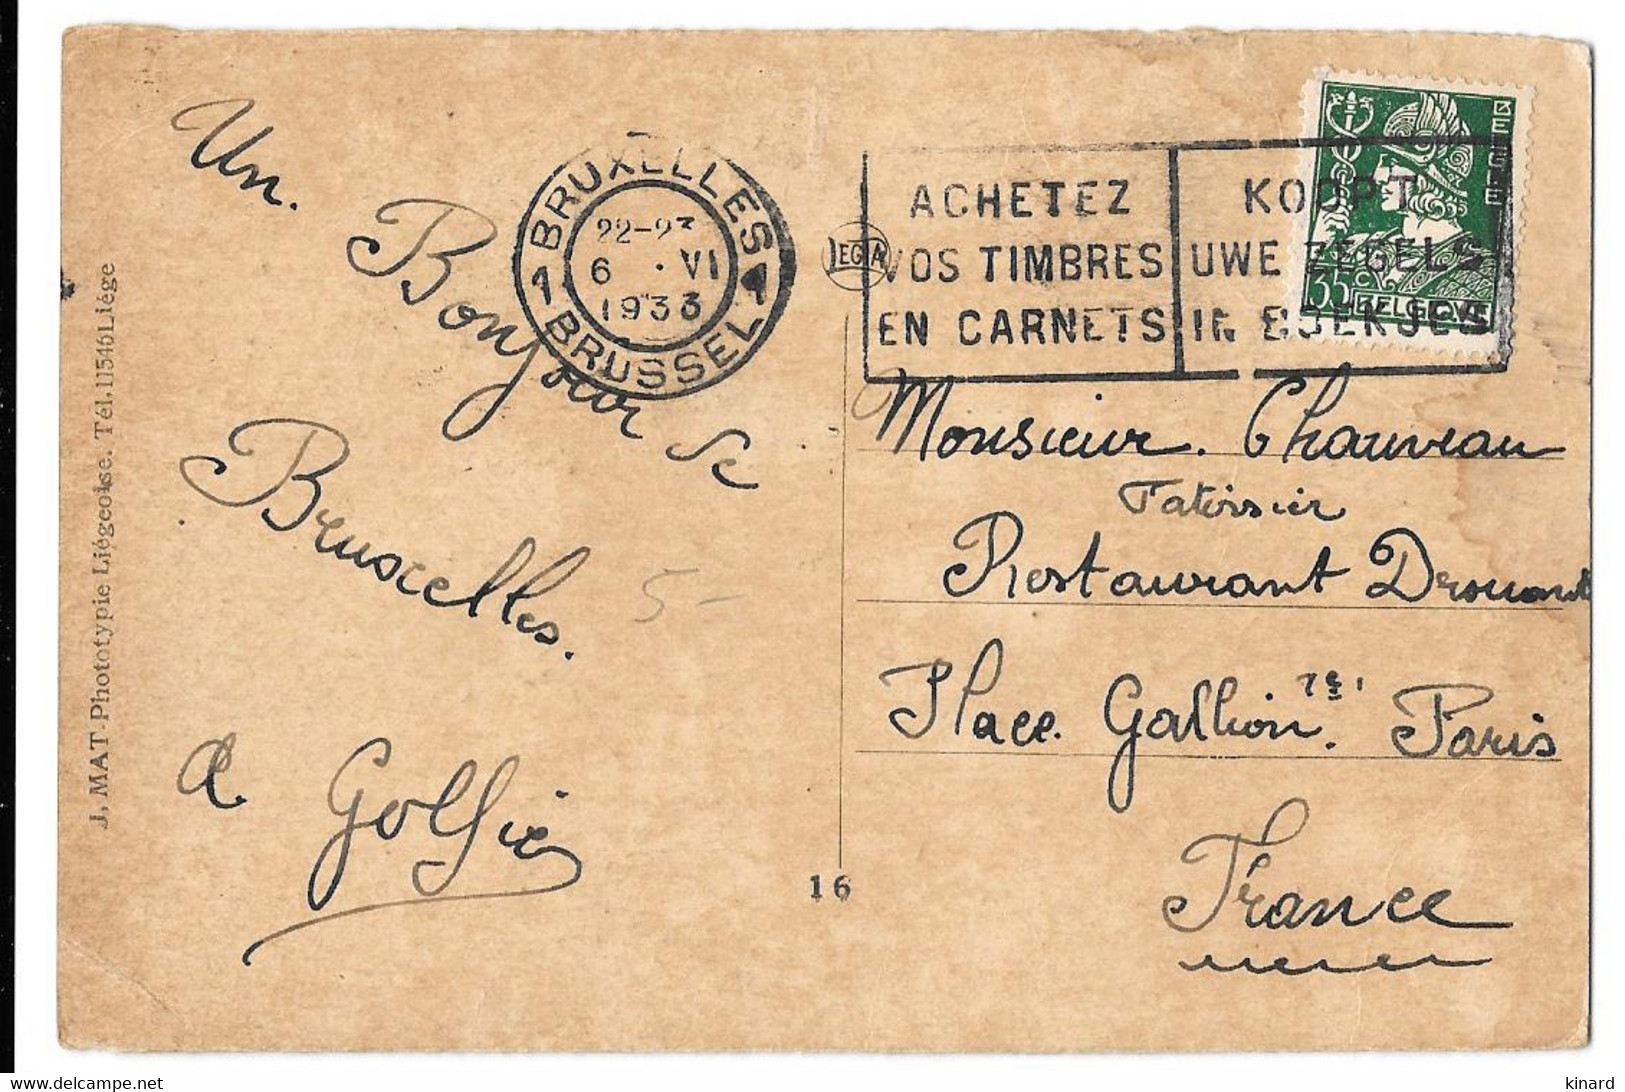 Un.
Bonjour de
Bruxelles.
A Golfier
J. MAT - Phototypie Liégeoise. Tél. 11546 Liége
1 BRUXELLES 1
22-23
6 . VI
1933
BRUSSEL
LEGIA
ACHETEZ
VOS TIMBRES
EN CARNETS
KOOPT
UWE ZEGELS
IN BOEKJES
BELGIE
35c BELGIQUE
Monsieur. Chauveau
Patissier
Restaurant Drouant
Place Gallion. Paris
France
5-
16
www.delcampe.net
kinard